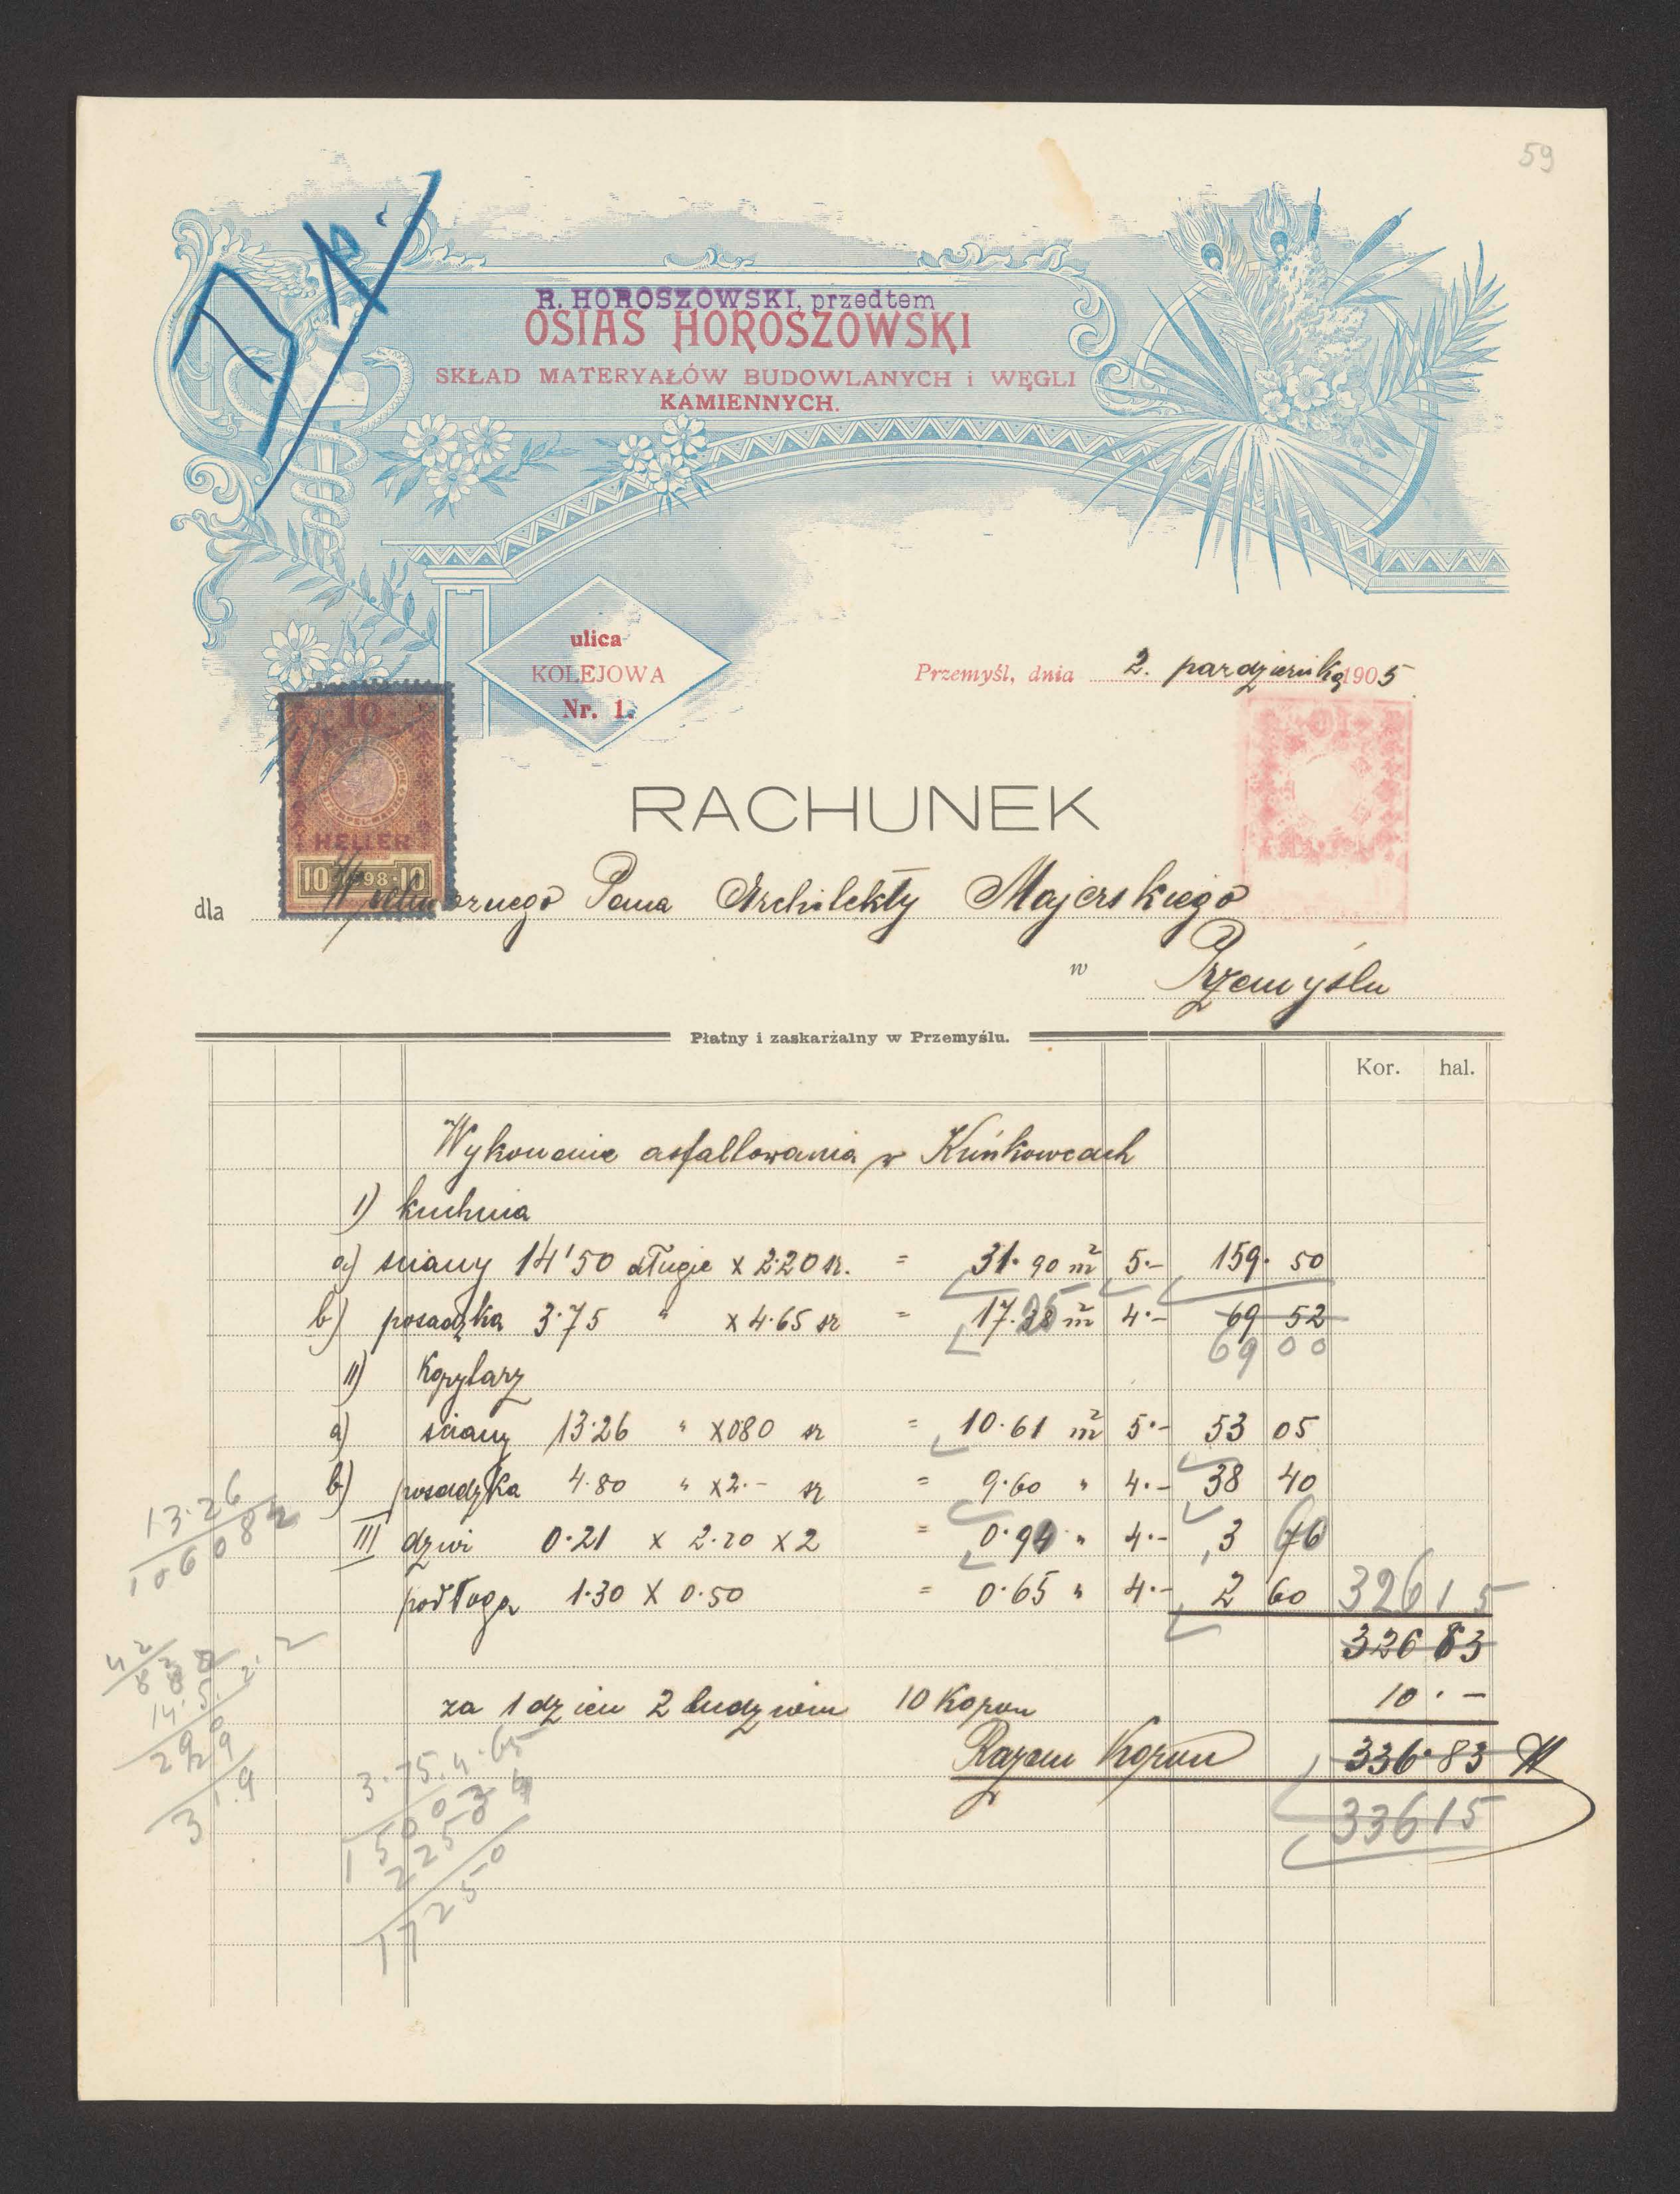 59
R. HOROSZOWSKI, przedtem
OSIAS HOROSZOWSKI
SKŁAD MATERYAŁÓW BUDOWLANYCH i WĘGLI
KAMIENNYCH.
ulica
KOLEJOWA
Nr. 1.
Przemyśl, dnia 2. pazdziernika 1905
10
HELLER
10 1898 10
RACHUNEK
dla Wielmożnego Pana Architekty Majerskiego
w Przemyślu
Płatny i zaskarżalny w Przemyślu.
Kor. hal.
Wykonanie asfaltowania w Kuńkowcach
I) kuchnia
a) sciany 14'50 długie x 2·20 sz. = 31·90 m² 5·- 159·50
b) posadzka 3·75 " x 4·65 sz = 17.38 m² 4·- 69 52
69 00
II) Korytarz
a) sciany 13·26 " x 080 sz = 10·61 m² 5·- 53 05
b) posadzka 4·80 " x 2·- sz = 9·60 " 4·- 38 40
III dzwi 0·21 x 2·20 x 2 = 0·94 " 4·- 3 76
podłoga 1·30 x 0·50 = 0·65 " 4·- 2 60 326 15
326 83
za 1 dzien 2 ludziom 10 Koron 10·-
Razem Koron 336·83
336 15
13·26
10608
3·75.4·65
1500
225
17250
2929
31.9